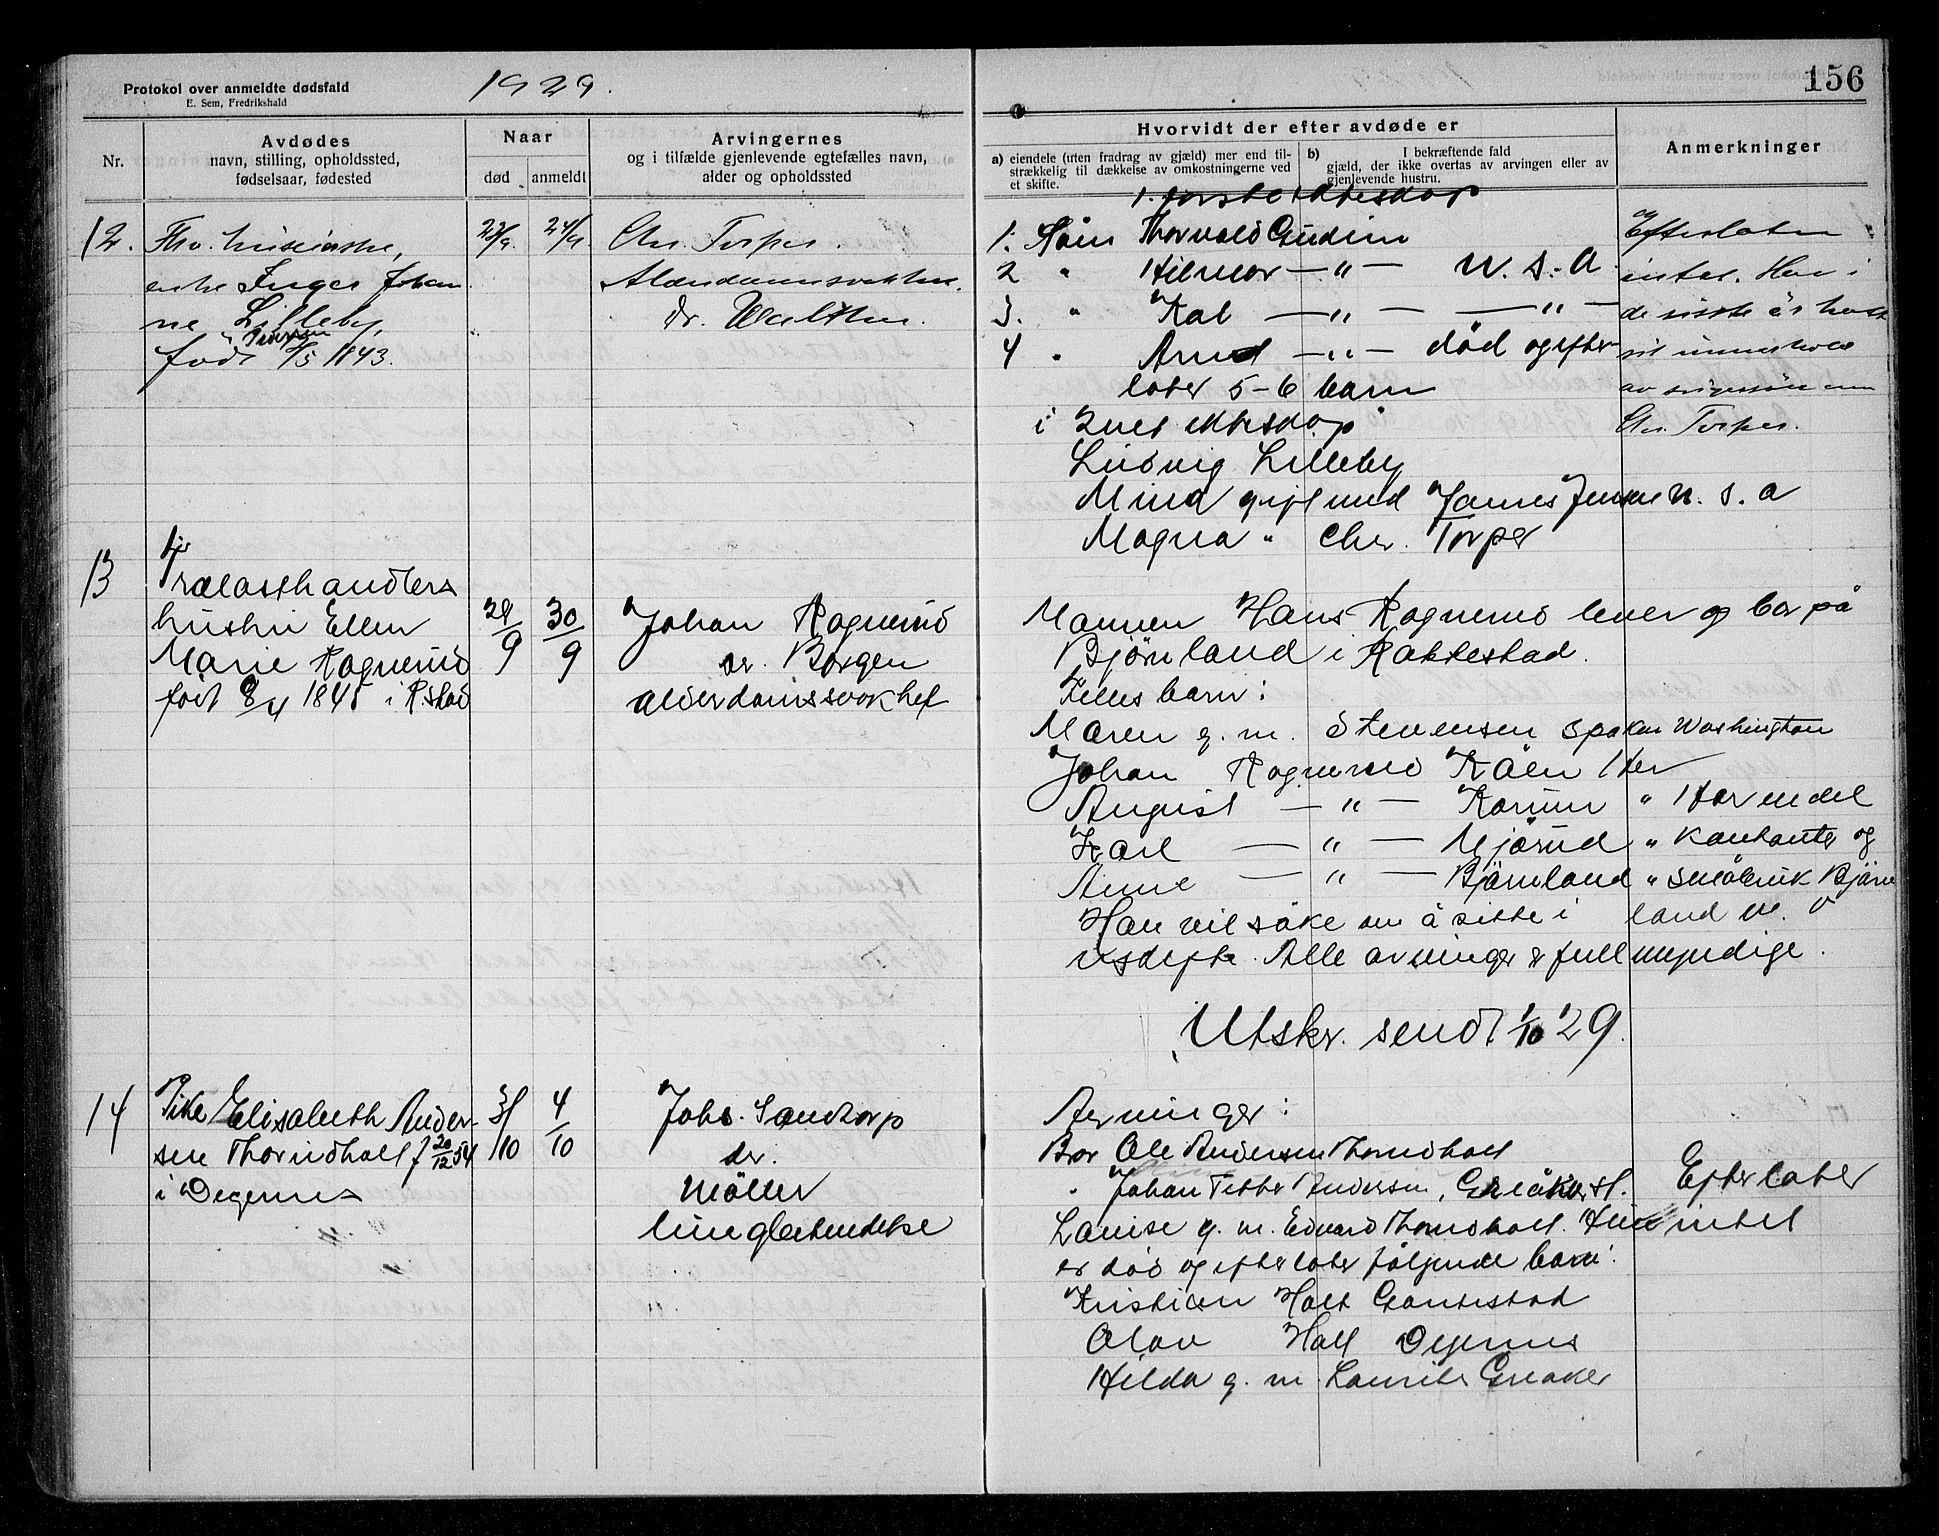 Protokol over anmeldte dødsfald
E. Sem, Fredrikshald
1929.
156
Nr.
Avdødes
navn, stilling, opholdssted,
fødselsaar, fødested
Naar
død
anmeldt
Arvingernes
og i tilfælde gjenlevende egtefælles navn,
alder og opholdssted
Hvorvidt der efter avdøde er
a) eiendele (uten fradrag av gjæld) mer end til-
strækkelig til dækkelse av omkostningerne ved
et skifte.
b) I bekræftende fald
gjæld, der ikke overtas av arvingen eller av
gjenlevende hustru.
Anmerkninger
12.
enke Inger Johan
ne Lilleby,
Pedersen
født /5 1843.
23/9. 24/9.
Chr. Torper.
Dr. Walthn.
1. første ektesdap
1. Søn Thorvald Gudim
2 " Hilmar — " — U. S. A
3. " Kal — " — — " —
4 " Arnd — " — død og efter
later 5-6 barn
i 2net ektesdap
Ludvig Lilleby
Mina gift med James Jensen U. S. a
Magna " Chr. Torper
Efterlater
intet. Har i
de sidste år hatt
sit innerhold
av svigersönnen
Chr. Torper.
13
Fhv
Trælasthandlers
hustru Ellen
Marie Ragnerud
født 8/4 1845 i R.stad
29/9
30/9
Johan Ragnerud
Dr. Borgen
alderdomssvakhet
Mannen Hans Ragnerud lever og bor på
Björnland i Rakkestad.
Felles barn:
Maren g. m. Stevensen Spokan Washington
Johan Ragnerud Kåen Her
August — " — Karum " Harendel
Karl — " — Mjörud " Kontante og
Anne — " — Björnland " småbruk Björn
Han vil söke om å sitte i land
uskifte. Alle arvinger er fullmyndige.
Utskr. sendt 1/10 29.
14
Pike Elisabeth Ander-
sen Thorndholt f 20/12 54
i Degernes
3/10
4/10
Johs. Sandtorp
dr.
Möller
lungebetendelse
Arvinger:
Bror Ole Andersen Thorndholt
" Johan Petter Andersen, Greåker st.
Lovise g. m. Edvard Thorndholt. Hun
er død og efterlater følgende barn:
Kristian Holt Gautestad
Olav Holt Degernes
Hilda g. m. Laurits Greaker
Efterlater
intet